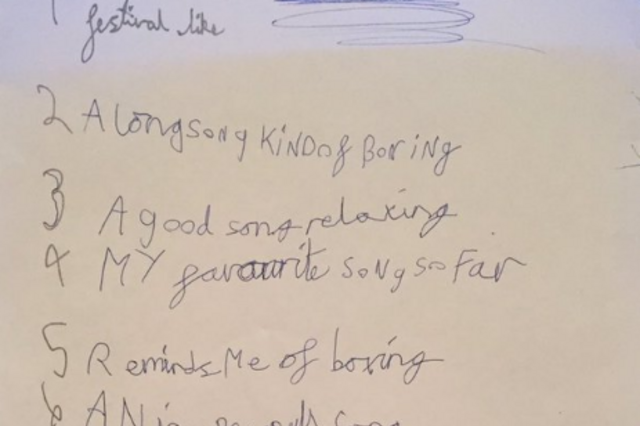 1 festival like
2 A long song KiNDof BoriNg
3 A good song relaxing
4 MY favourite soNg so Far
5 Reminds Me of boxing
6 A